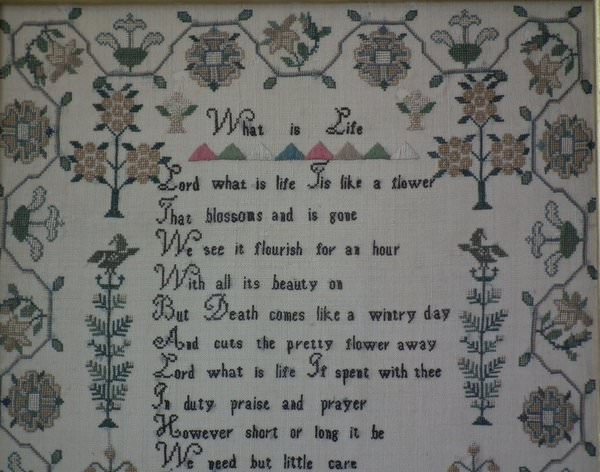 What is Life
Lord what is life Tis like a flower
That blossoms and is gone
We see it flourish for an hour
With all its beauty on
But Death comes like a wintry day
And cuts the pretty flower away
Lord what is life If spent with thee
In duty praise and prayer
However short or long it be
We need but little care